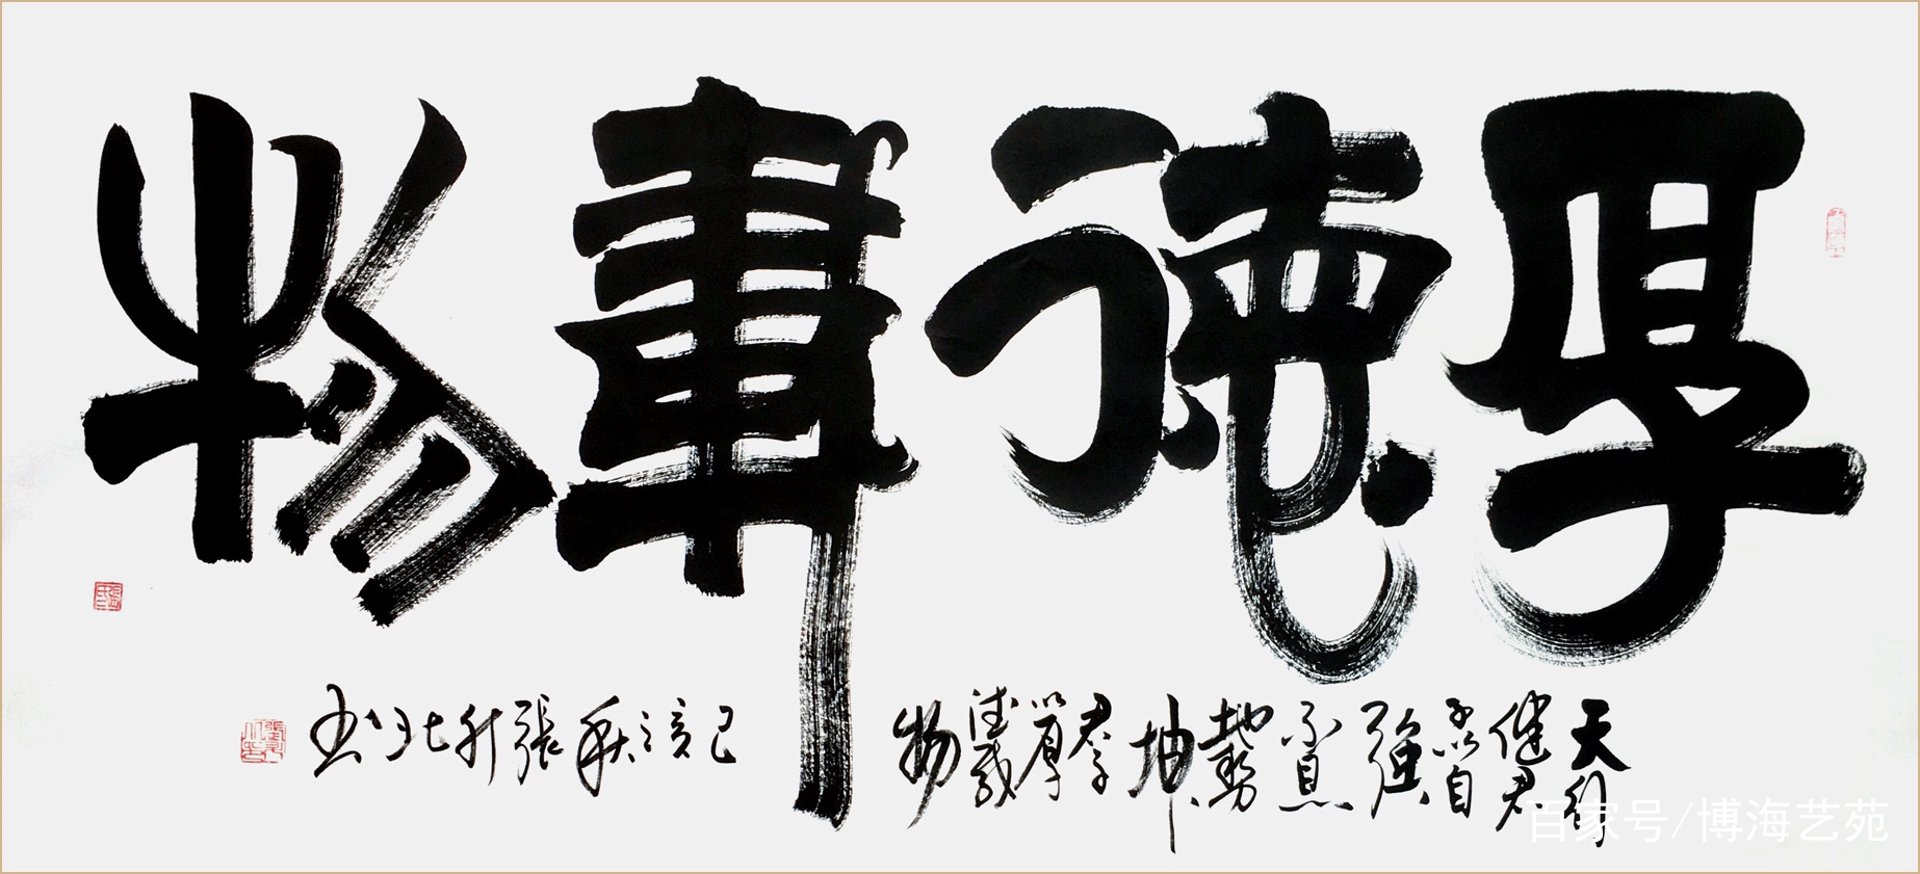 厚德載物
天行健君子以自強不息地勢坤君子以厚德載物
己亥之秋張升书
百家号/博海艺苑